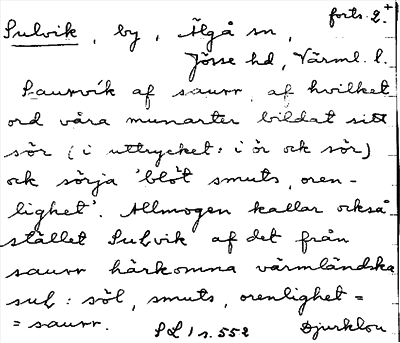 forts. 2.+
Sulvik, by, Älgå sn,
Jösse hd, Värml. l.
Saurvík af saurr, af hvilket
ord våra munarter bildat sitt
sör (i uttrycket: i ör ock sör)
ock sörja 'blöt smuts, oren-
lighet'. Allmogen kallar också
stället SuLvik af det från
saurr härkomna värmländska
suL: söl, smuts, orenlighet =
= saurr.
SL 1 s. 552 Djurklou